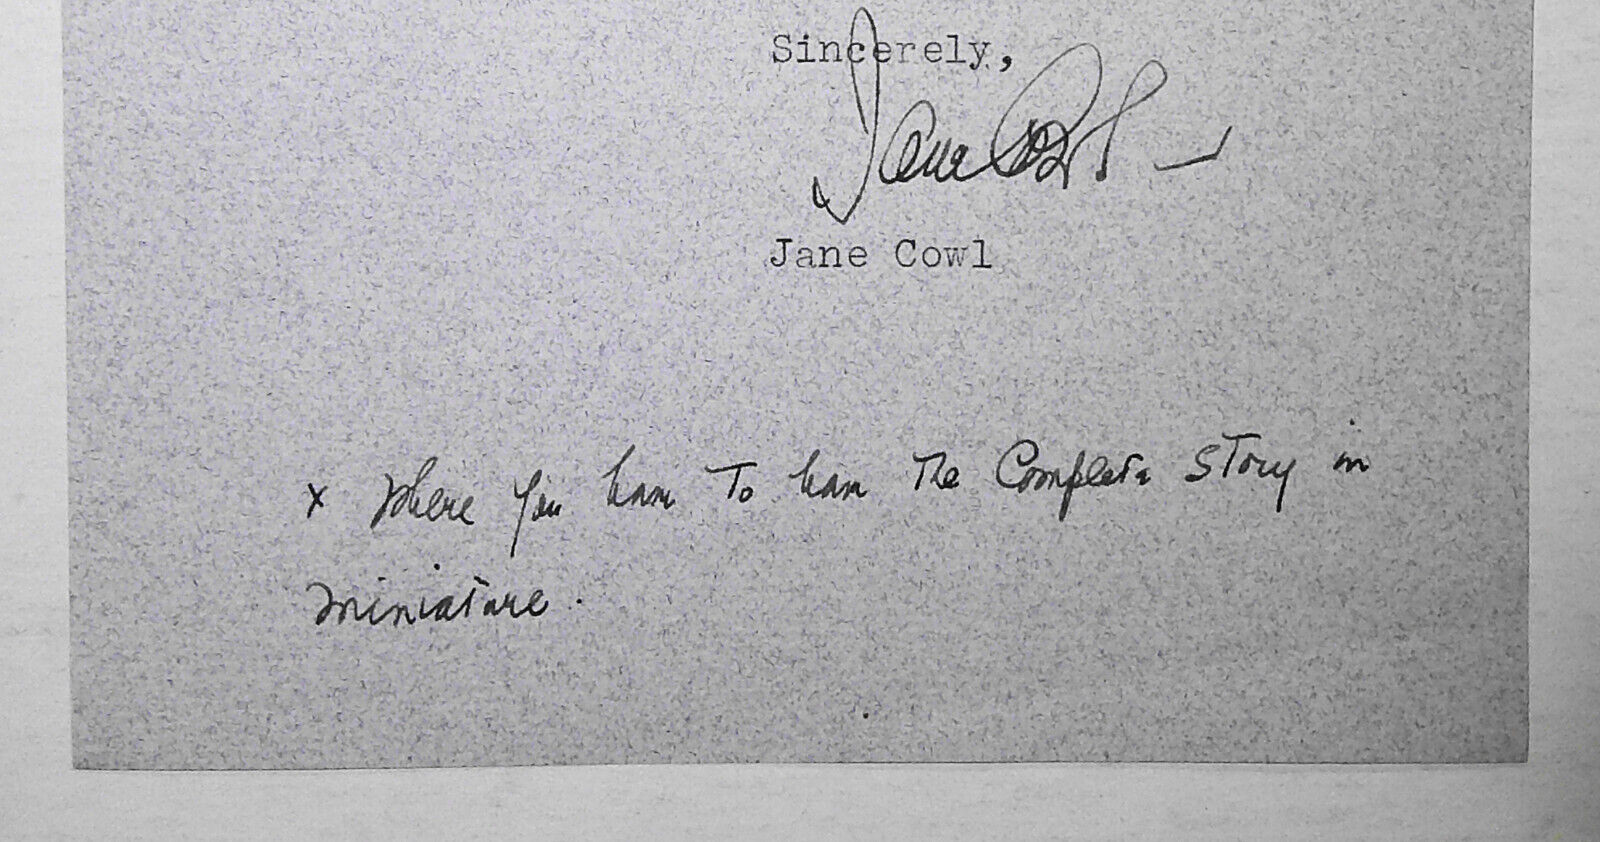 Sincerely,
Jane Cowl
Jane Cowl
x Where you have to have the Complete story in
miniature.